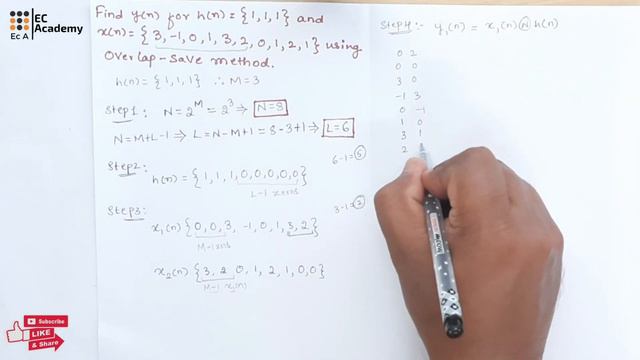 EC
Academy
EcA
Find y(n) for h(n) = {1,1,1} and
x(n) = {3,-1,0,1,3,2,0,1,2,1} using
Overlap-save method.
h(n) = {1,1,1} ∴ M=3
Step1: N=2^M = 2^3 ⇒ N=8
N=M+L-1 ⇒ L=N-M+1=8-3+1 ⇒ L=6
Step2: 6-1=5
h(n) = {1,1,1,0,0,0,0,0}
L-1 zeros
Step3: 3-1=2
x1(n) {0,0,3,-1,0,1,3,2}
M-1 zeros
x2(n) {3,2,0,1,2,1,0,0}
M-1 x1(n)
Step4:- y1(n) = x1(n) Ⓝ h(n)
0 2
0 0
3 0
-1 3
0 -1
1 0
3 1
2
SUBSCRIBE
LIKE
& Share